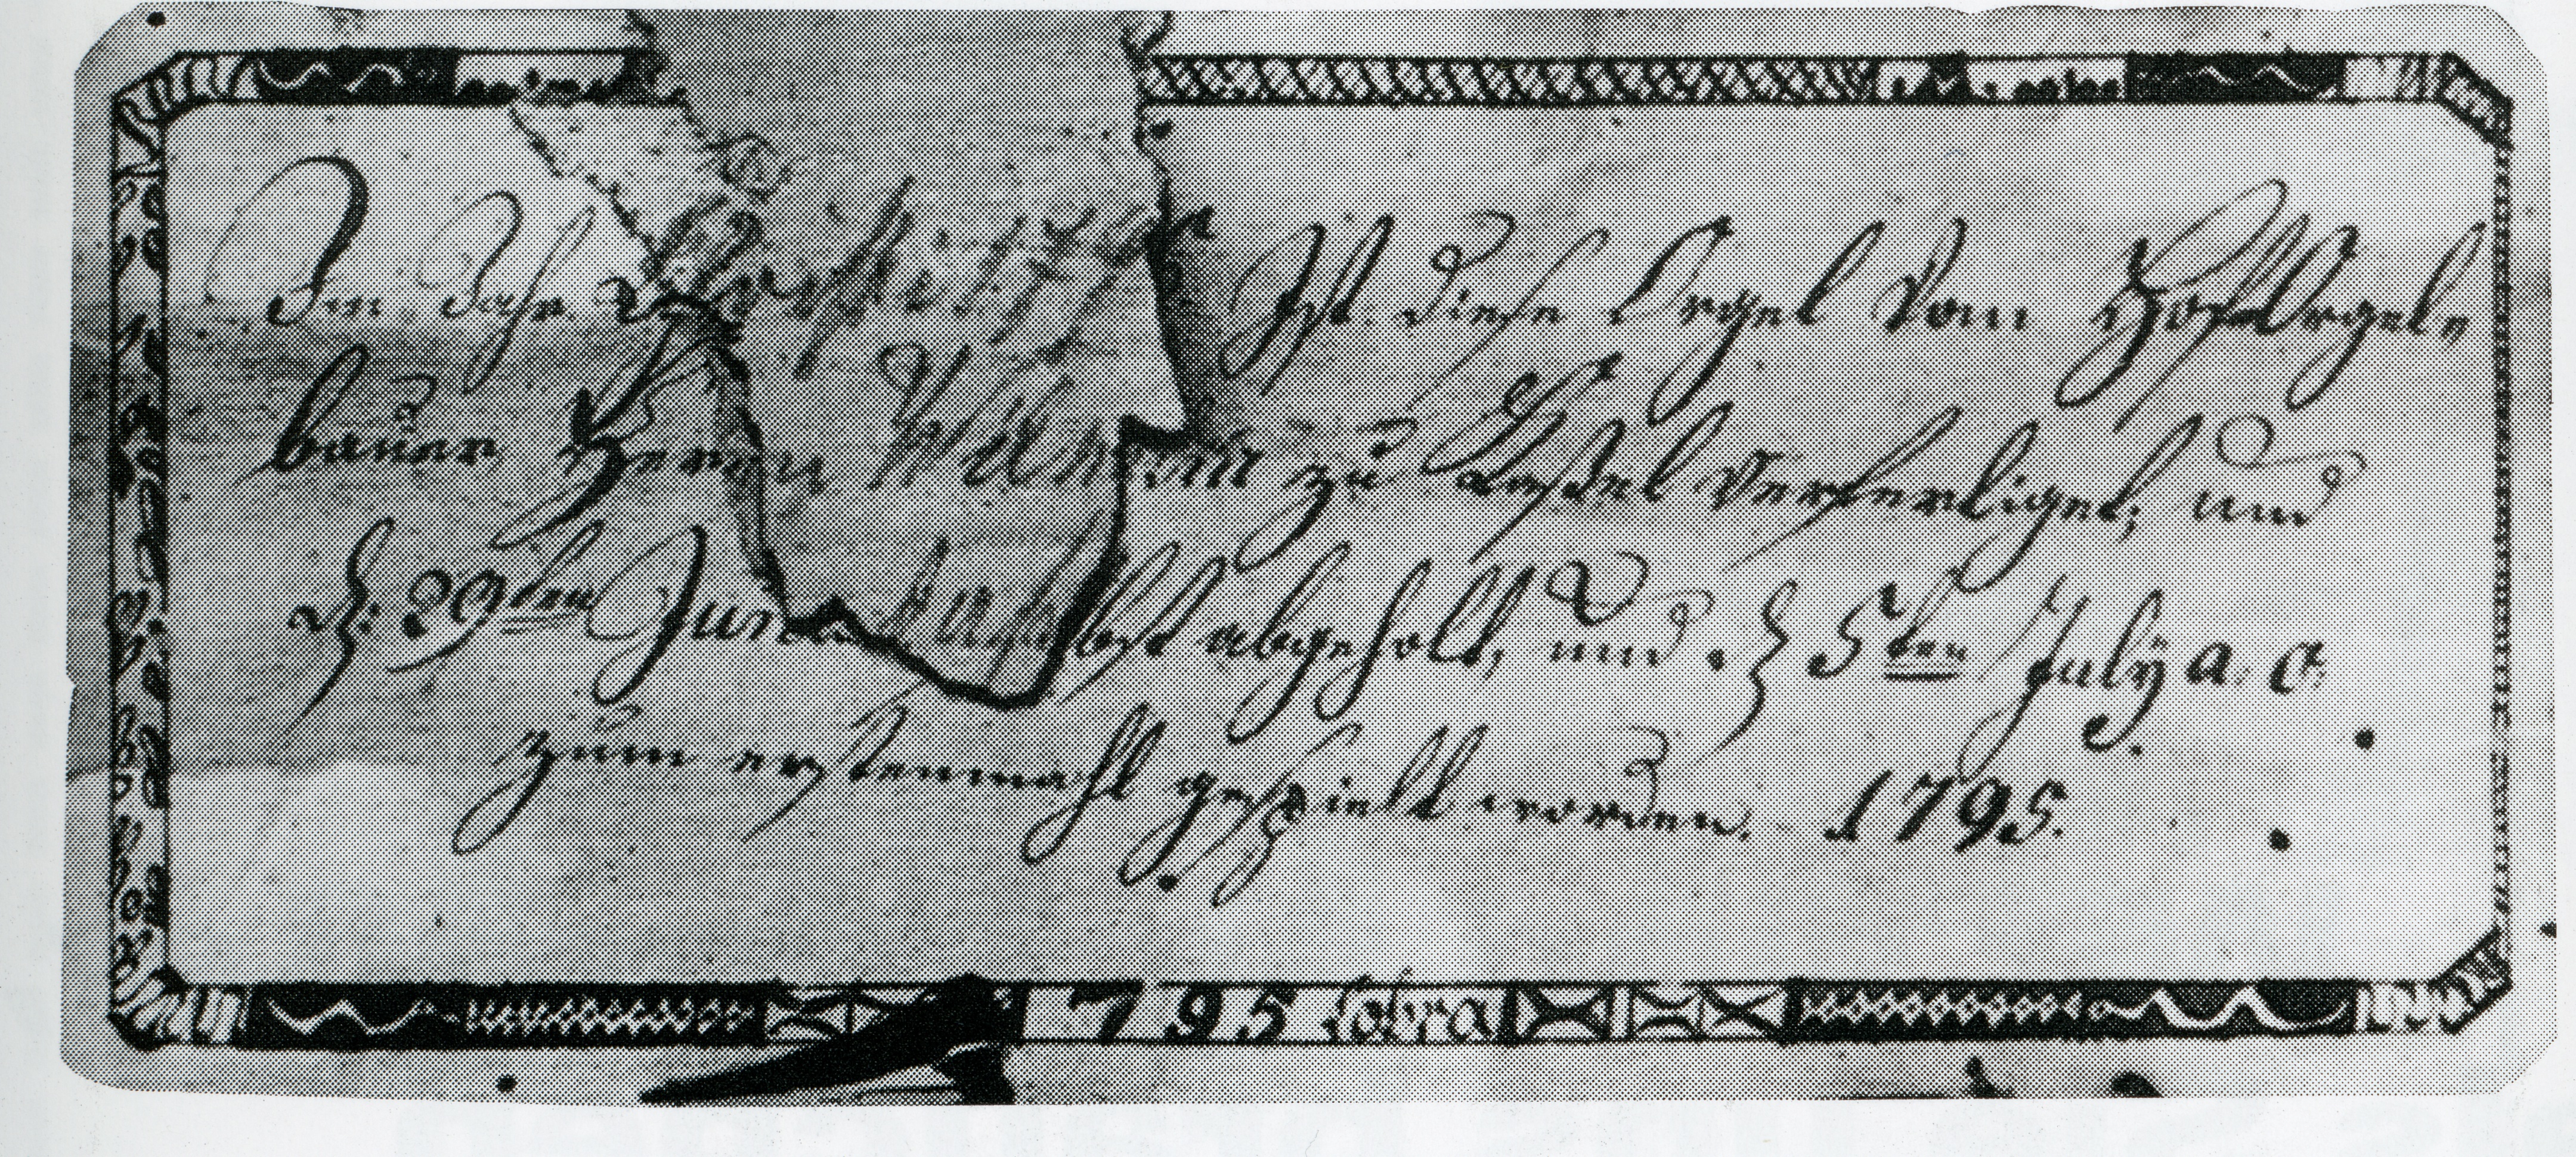 Im Jahr Ist diese Orgel Vom HofOrgel„
bauer Herrn Wilhelm zu Caßel Verfertiget, und
d: 29ten Juni abgeholt, und d 5ten July a. c.
zum erstenmahl gespielt worden. 1795.
795